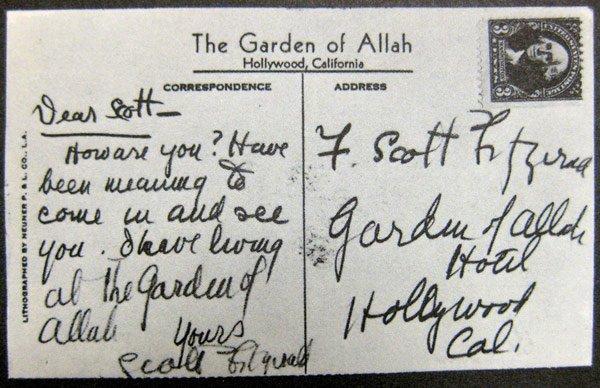 The Garden of Allah
Hollywood, California
CORRESPONDENCE
ADDRESS
Dear Scott—
How are you? Have
been meaning to
come in and see
you. I have living
at The Garden of
Allah
Yours
Scott Fitzgerald
F. Scott Fitzgerald
Garden of Allah
Hotel
Hollywood
Cal.
LITHOGRAPHED BY NEUNER P. & L. CO., L.A.
3 3